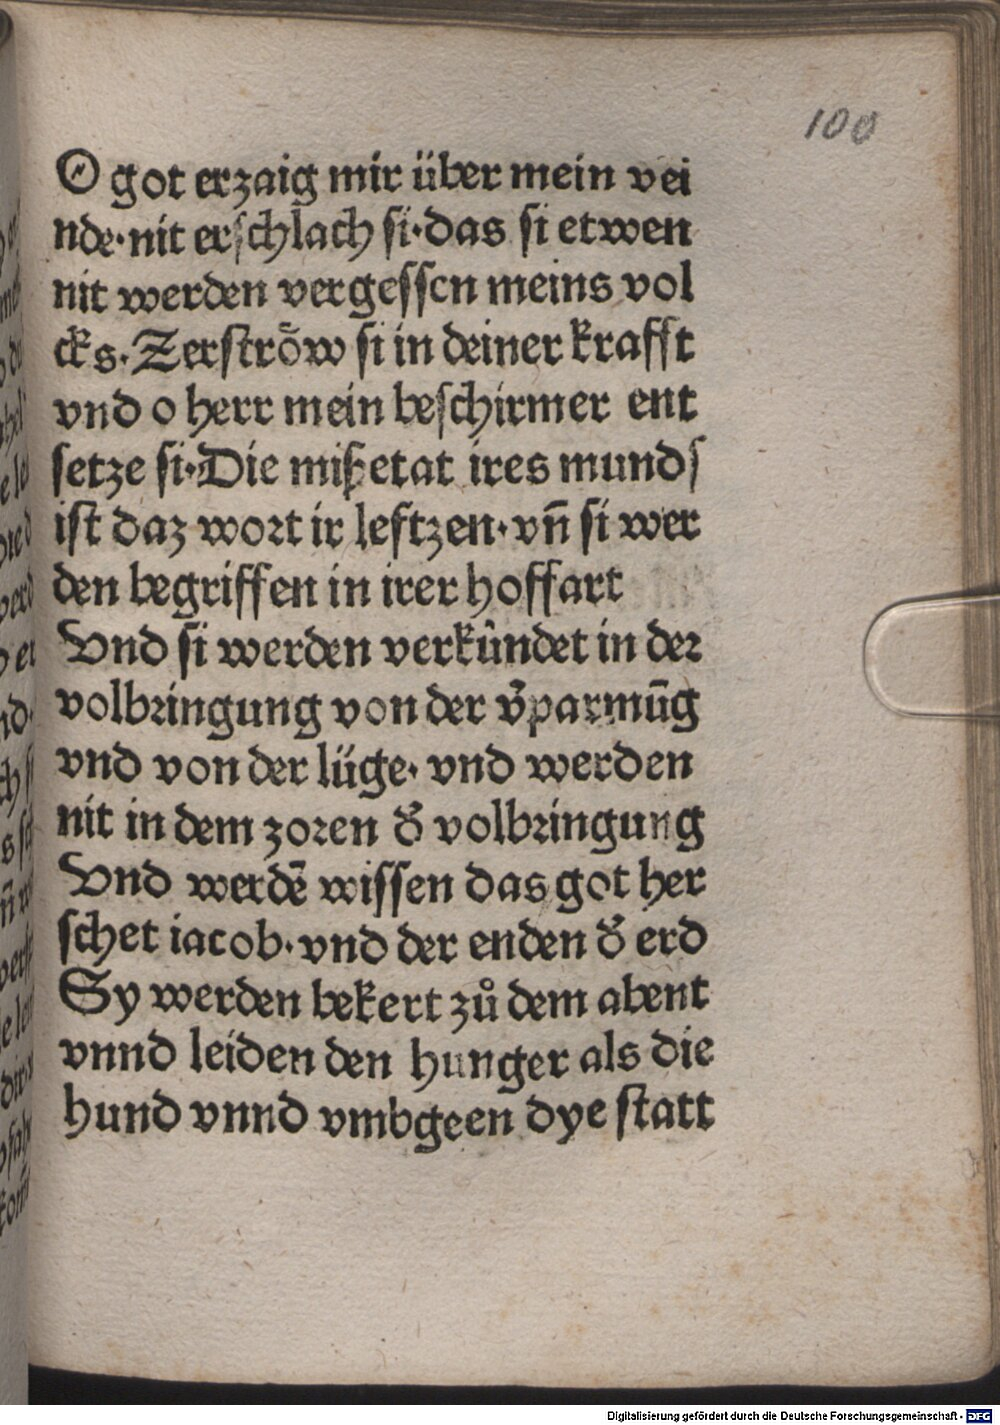 100
O got erzaig mir über mein vei
nde·nit erſchlach ſi·das ſi etwen
nit werden vergeſſen meins vol
cks·Zerſtrőw ſi in deiner krafft
vnd o herr mein beſchirmer ent
ſetze ſi·Die mißetat ires munds
iſt daz wort ir leftzen·vn̄ ſi wer
den begriffen in irer hoffart
Vnd ſi werden verkündet in der
volbringung von der v̄parmūg
vnd von der lüge· vnd werden
nit in dem zoren d̄ volbringung
Vnd werdē wiſſen das got her
ſchet iacob·vnd der enden d̄ erd
Sy werden bekert zů dem abent
vnnd leiden den hunger als die
hund vnnd vmbgeen dye ſtatt
Digitalisierung gefördert durch die Deutsche Forschungsgemeinschaft - DFG